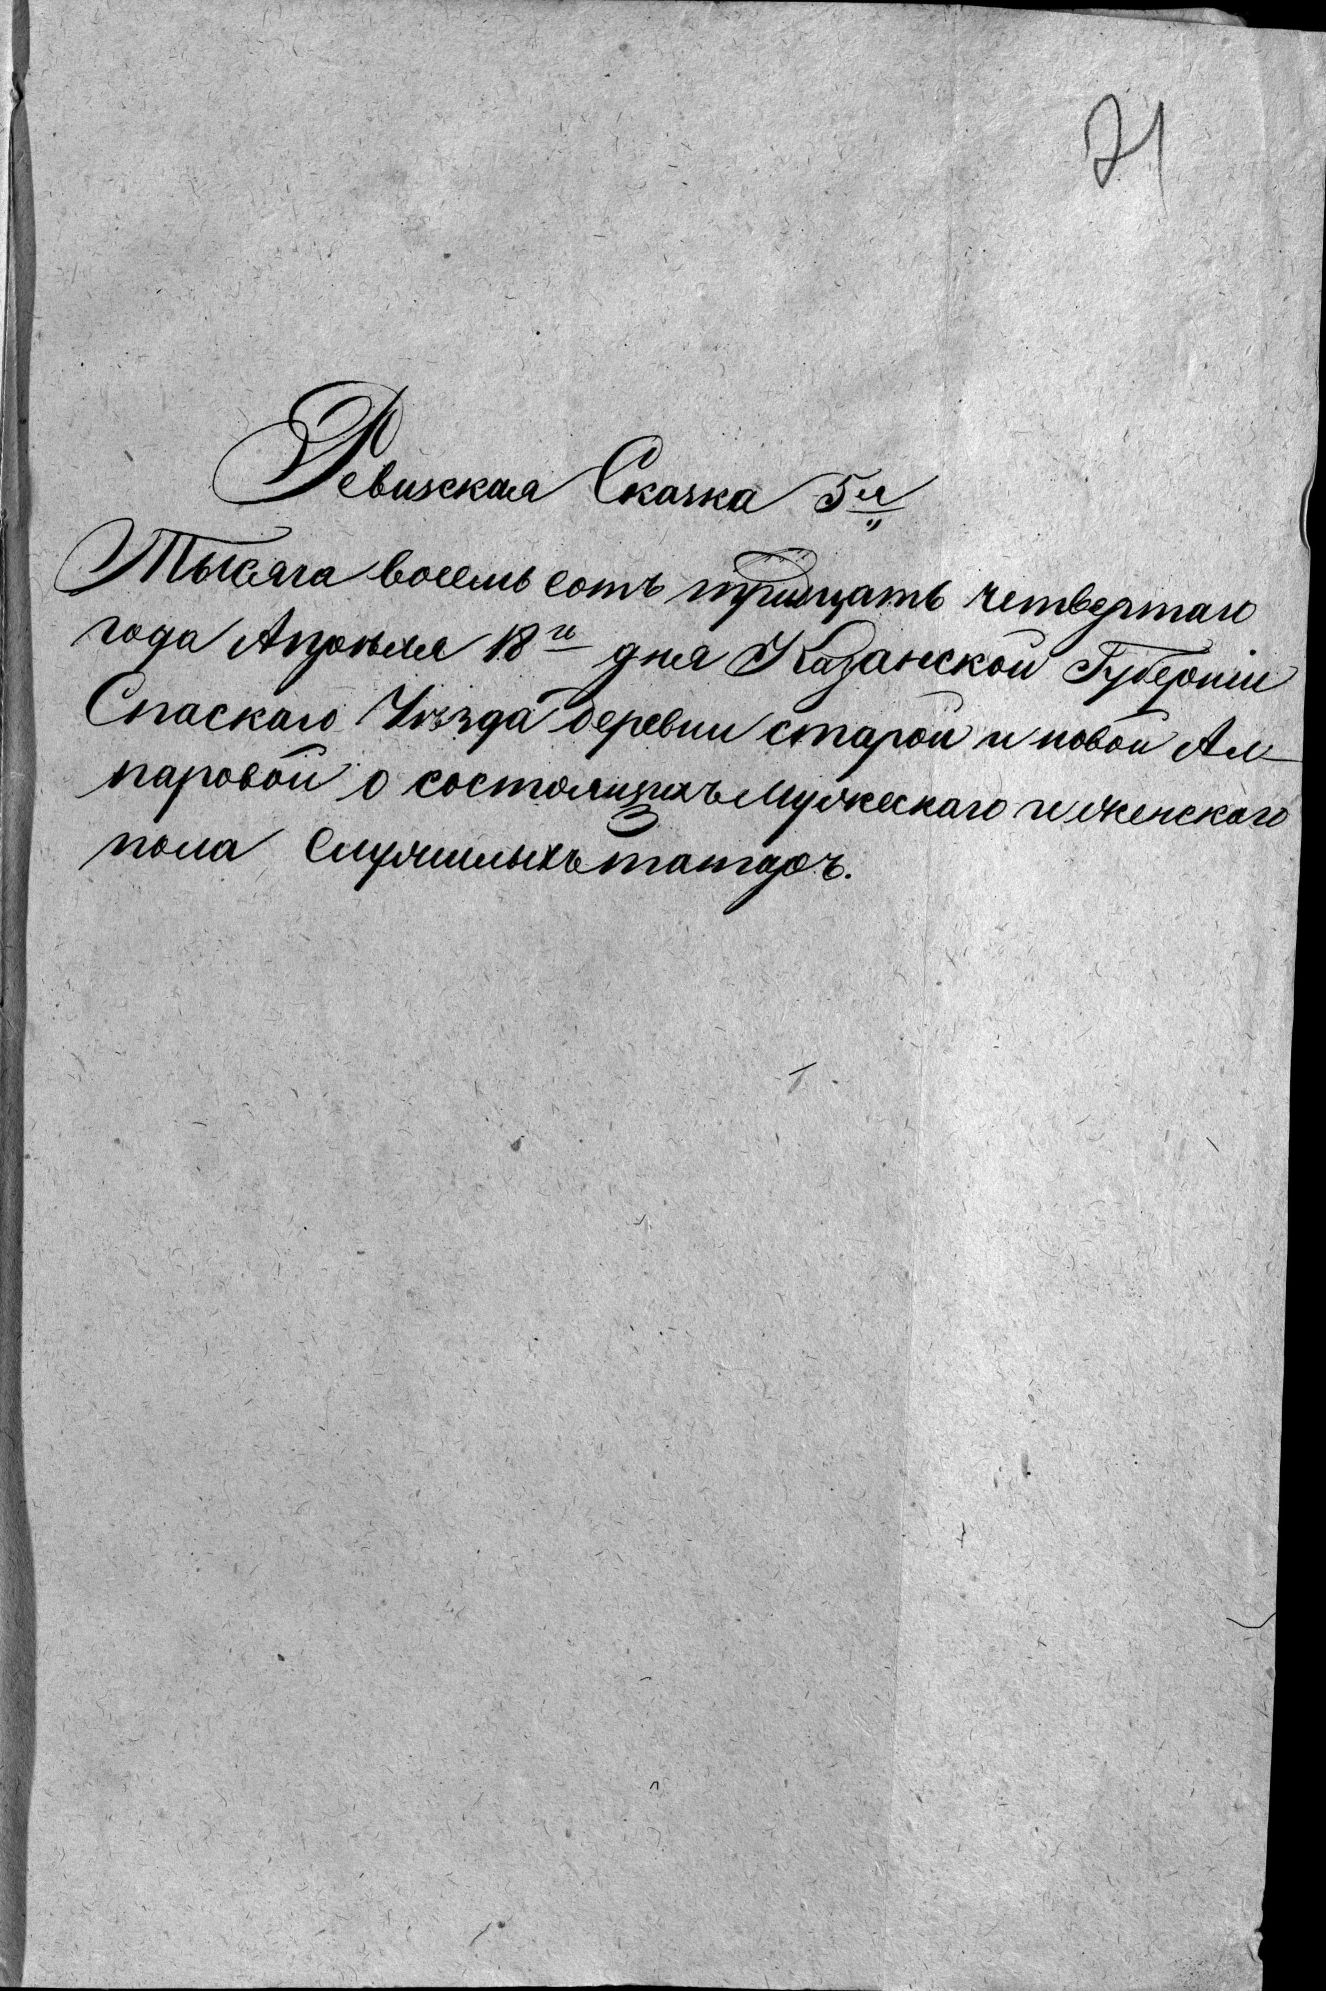 71
Ревизская Сказка 5я
Тысяча восемь сотъ тридцать четвертаго
года Апреля 18го дня Казанской Губерніи
Спаскаго Уѣзда деревни старой и новой Ал-
паровой о состоящихъ мужескаго и женскаго
пола служилыхъ татаръ.